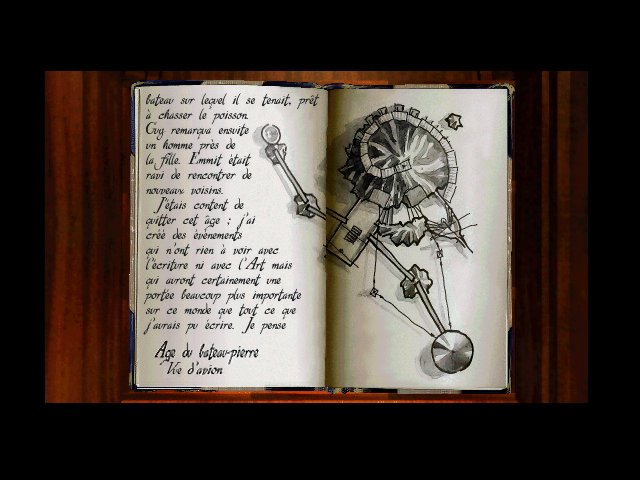 bateau sur lequel il se tenait, prêt
à chasser le poisson.
Guy remarqua ensuite
un homme près de
la fille. Emmit était
ravi de rencontrer de
nouveaux voisins.
J'étais content de
quitter cet âge ; j'ai
créé des événements
qui n'ont rien à voir avec
l'écriture ni avec l'Art mais
qui auront certainement une
portée beaucoup plus importante
sur ce monde que tout ce que
j'aurais pu écrire. Je pense
Age du bateau-pierre
Vue d'avion